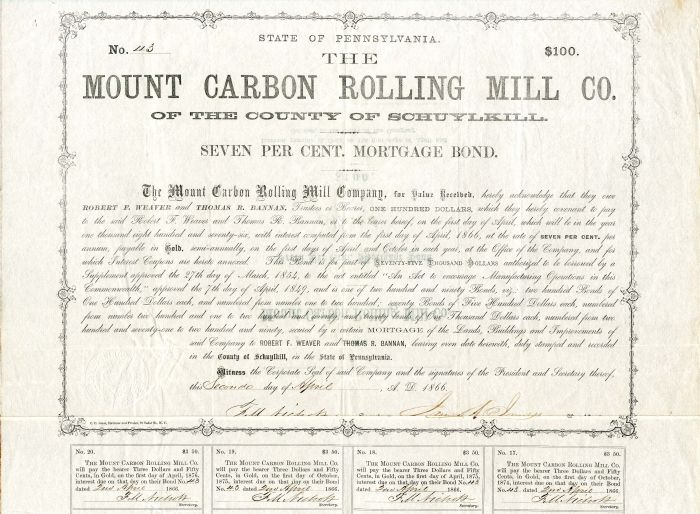 STATE OF PENNSYLVANIA.
No. 43
$100.
THE
MOUNT CARBON ROLLING MILL CO.
OF THE COUNTY OF SCHUYLKILL.
SEVEN PER CENT. MORTGAGE BOND.
The Mount Carbon Rolling Mill Company, for Value Received, hereby acknowledge that they owe
ROBERT F. WEAVER and THOMAS R. BANNAN, Trustees or Bearer, ONE HUNDRED DOLLARS, which they hereby covenant to pay
to the said Robert F. Weaver and Thomas R. Bannan, or to the bearer hereof, on the first day of April, which will be in the year
one thousand eight hundred and seventy-six, with interest computed from the first day of April, 1866, at the rate of SEVEN PER CENT. per
annum, payable in Gold, semi-annually, on the first days of April and October in each year, at the Office of the Company, and for
which Interest Coupons are hereto annexed. This Bond is part of SEVENTY-FIVE THOUSAND DOLLARS authorized to be borrowed by a
Supplement approved the 27th day of March, 1854, to the act entitled "An Act to encourage Manufacturing Operations in this
Commonwealth," approved the 7th day of April, 1849, and is one of two hundred and ninety Bonds, viz.: two hundred Bonds of
One Hundred Dollars each, and numbered from number one to two hundred; seventy Bonds of Five Hundred Dollars each, numbered
from number two hundred and one to two hundred and seventy; and twenty Bonds of One Thousand Dollars each, numbered from two
hundred and seventy-one to two hundred and ninety, secured by a certain MORTGAGE of the Lands, Buildings and Improvements of
said Company to ROBERT F. WEAVER and THOMAS R. BANNAN, bearing even date herewith, duly stamped and recorded
in the County of Schuylkill, in the State of Pennsylvania.
Witness the Corporate Seal of said Company and the signatures of the President and Secretary thereof,
this Second day of April, A. D. 1866.
No. 20. $3 50.
THE MOUNT CARBON ROLLING MILL CO.
will pay the bearer Three Dollars and Fifty
Cents, in Gold, on the first day of April, 1876,
interest due on that day on their Bond No. 43
dated 2nd April 1866.
F.M. Nichols
Secretary.
No. 19. $3 50.
THE MOUNT CARBON ROLLING MILL CO.
will pay the bearer Three Dollars and Fifty
Cents, in Gold, on the first day of October, 1875,
interest due on that day on their Bond
No. 43 dated 2nd April 1866.
F.M. Nichols
Secretary.
No. 18. $3 50.
THE MOUNT CARBON ROLLING MILL CO.
will pay the bearer Three Dollars and Fifty
Cents, in Gold, on the first day of April, 1875,
interest due on that day on their Bond No. 43
dated 2nd April 1866.
F.M. Nichols
Secretary.
No. 17. $3 50.
THE MOUNT CARBON ROLLING MILL CO.
will pay the bearer Three Dollars and Fifty
Cents, in Gold, on the first day of October,
1874, interest due on that day on their Bond
No. 43 dated 2nd April 1866.
F.M. Nichols
Secretary.